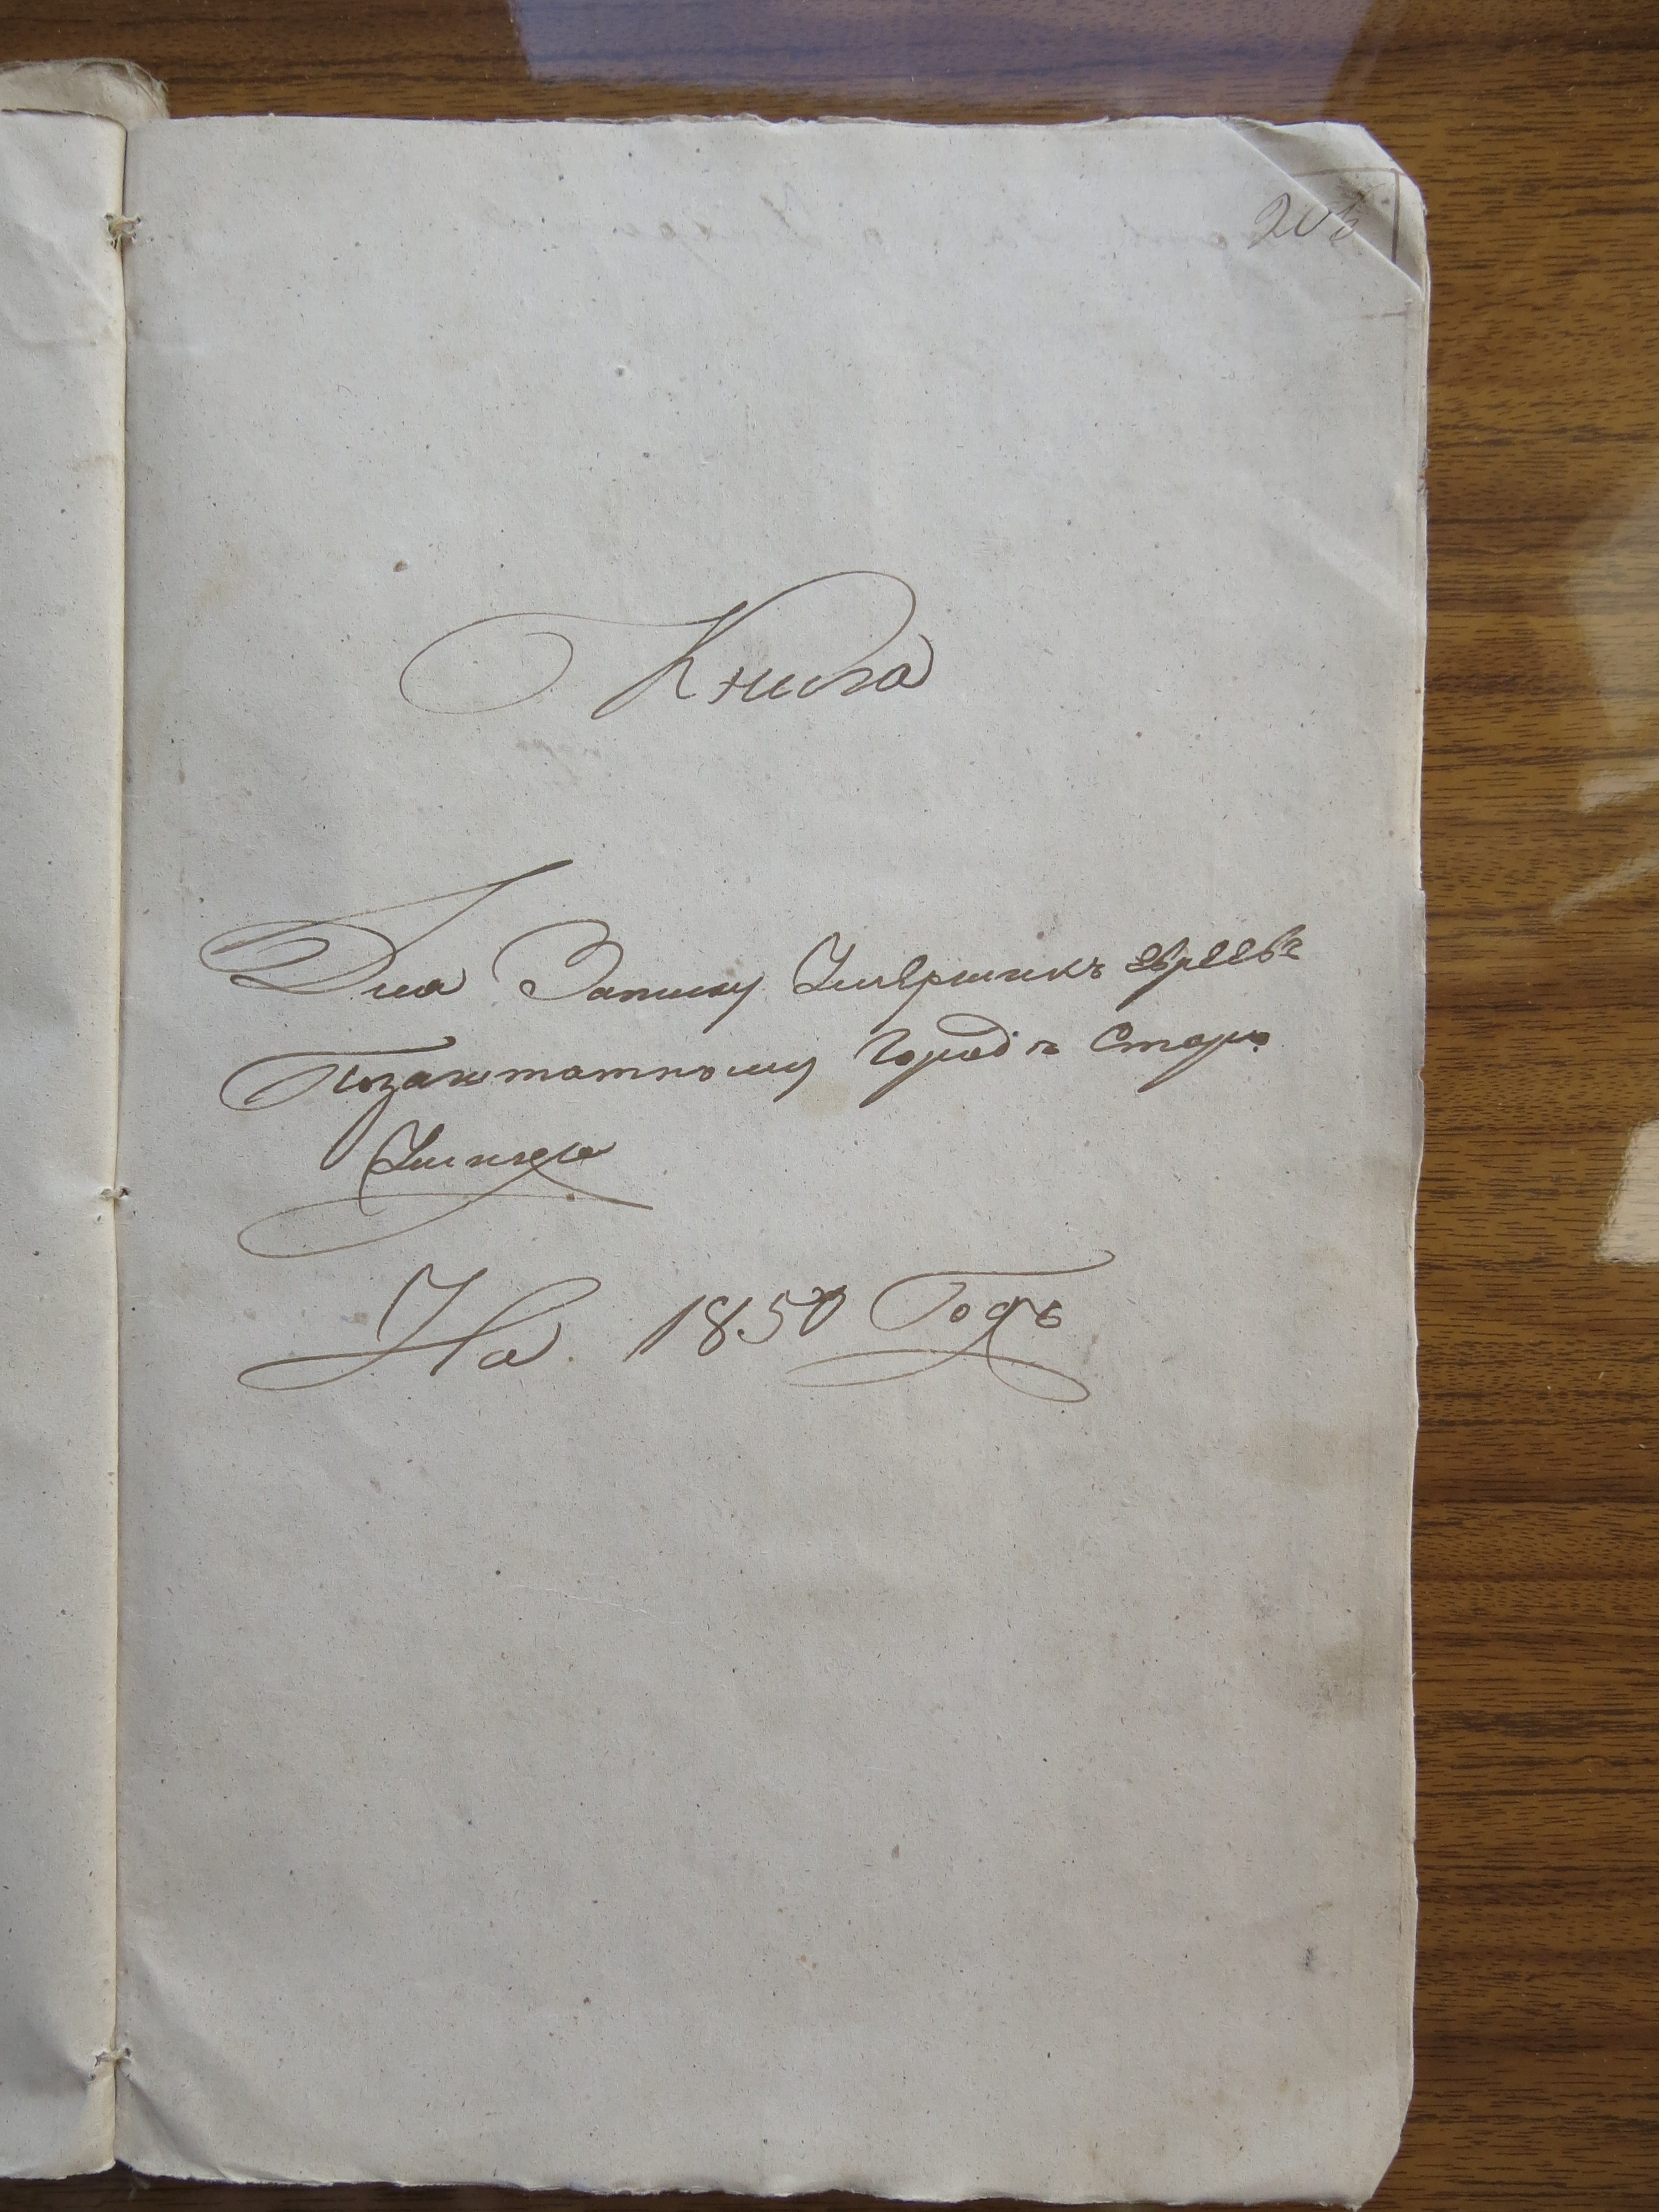 Книга
Для Записку Умершихъ евреевъ
Позаштатному Городѣ Старо
Ушице
На 1850 Годъ